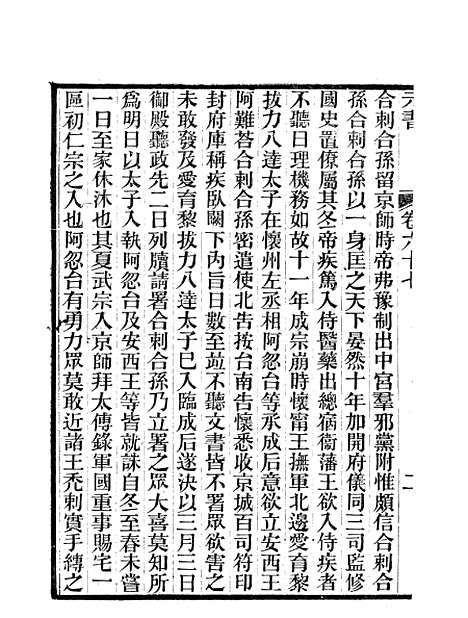 元書 卷六十七 二
合剌合孫留京師時帝弗豫制出中宮羣邪黨附惟頗信合剌合
孫合剌合孫以一身匡之天下晏然十年加開府儀同三司監修
國史置僚屬其冬帝疾篤入侍醫藥出總宿衞藩王欲入侍疾者
不聽日理機務如故十一年成宗崩時懷甯王撫軍北邊愛育黎
拔力八達太子在懷州左丞相阿忽台等承成后意欲立安西王
阿難荅合剌合孫密遣使北告按台南告懷悉收京城百司符印
封府庫稱疾臥闕下內旨日數至竝不聽文書皆不署眾欲害之
未敢發及愛育黎拔力八達太子入臨成后遂決以三月三日
御殿聽政先二日列牘請署合剌合孫乃立署之眾大喜莫知所
爲明日以太子入執阿忽台及安西王等皆就誅自冬至春未嘗
一日至家休沐也其夏武宗入京師拜太傅錄軍國重事賜宅一
區初仁宗之入也阿忽台有勇力眾莫敢近諸王禿剌實手縛之